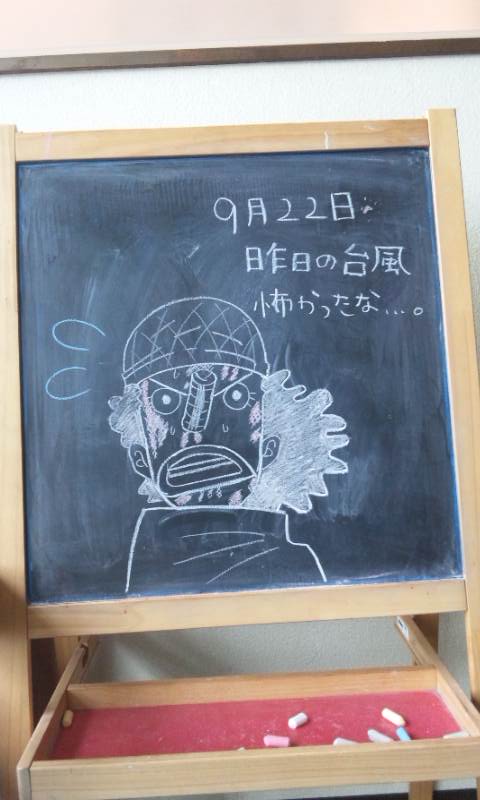 9月22日
昨日の台風
怖かったな...。